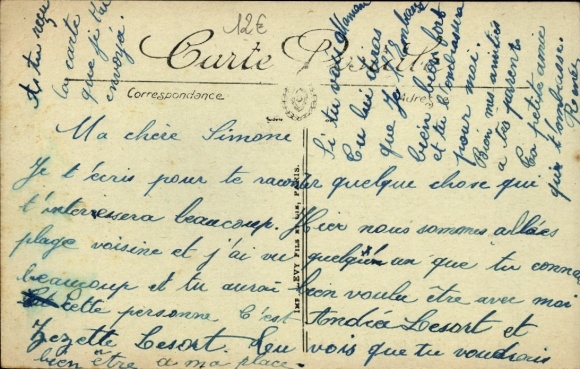 12€
Carte Postale
Correspondance
Adresse
Ma chère Simone
Je t'écris pour te raconter quelque chose qui
t'interessera beaucoup. Hier nous sommes allées
plage voisine et j'ai vu quelqu'un que tu connais
beaucoup et tu aurais bien voulu être avec moi
cette personne C'est Andrée Lesort et
Zezette Lesort. Tu vois que tu voudrais
bien être a ma place.
As tu reçu
la carte
que je t'ai
envoyé.
Si tu vois Maman
tu lui diras
que je l'embrasse
bien fort
et tu l'embrassera
pour moi.
Bien mes amitiés
a tes parents
Ta petite amie
qui t'embrasse.
Renée
IMP. LEVY FILS ET CIE, PARIS